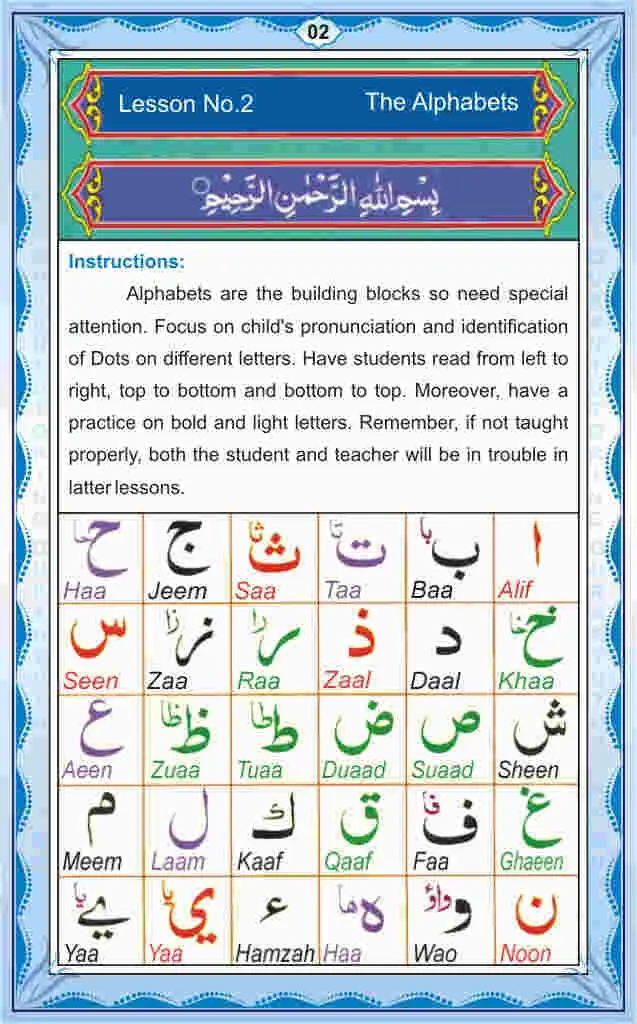 02
Lesson No.2 The Alphabets
بِسْمِ اللهِ الرَّحْمٰنِ الرَّحِيْمِ
Instructions:
Alphabets are the building blocks so need special
attention. Focus on child's pronunciation and identification
of Dots on different letters. Have students read from left to
right, top to bottom and bottom to top. Moreover, have a
practice on bold and light letters. Remember, if not taught
properly, both the student and teacher will be in trouble in
latter lessons.
ا ب با ت تا ث ثا ج ح حا
Alif Baa Taa Saa Jeem Haa
خ خا د ذ ر را ز زا س
Khaa Daal Zaal Raa Zaa Seen
ش ص ض ط طا ظ ظا ع
Sheen Suaad Duaad Tuaa Zuaa Aeen
غ ف فا ق ك ل م
Ghaeen Faa Qaaf Kaaf Laam Meem
ن و واؤ ہ ھا ء ي يا ے يا
Noon Wao Haa Hamzah Yaa Yaa